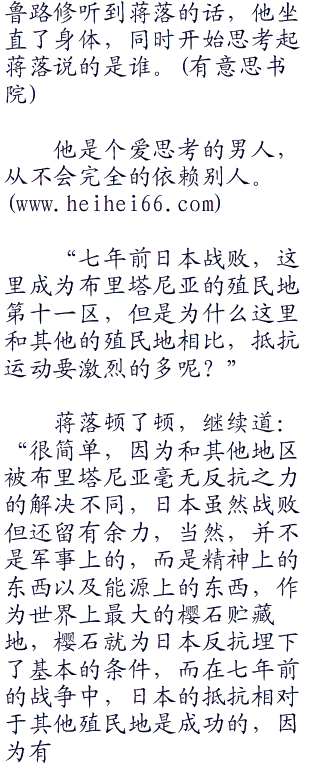 鲁路修听到蒋落的话，他坐
直了身体，同时开始思考起
蒋落说的是谁。(有意思书
院)
他是个爱思考的男人，
从不会完全的依赖别人。
(www.heihei66.com)
“七年前日本战败，这
里成为布里塔尼亚的殖民地
第十一区，但是为什么这里
和其他的殖民地相比，抵抗
运动要激烈的多呢？”
蒋落顿了顿，继续道：
“很简单，因为和其他地区
被布里塔尼亚毫无反抗之力
的解决不同，日本虽然战败
但还留有余力，当然，并不
是军事上的，而是精神上的
东西以及能源上的东西，作
为世界上最大的樱石贮藏
地，樱石就为日本反抗埋下
了基本的条件，而在七年前
的战争中，日本的抵抗相对
于其他殖民地是成功的，因
为有